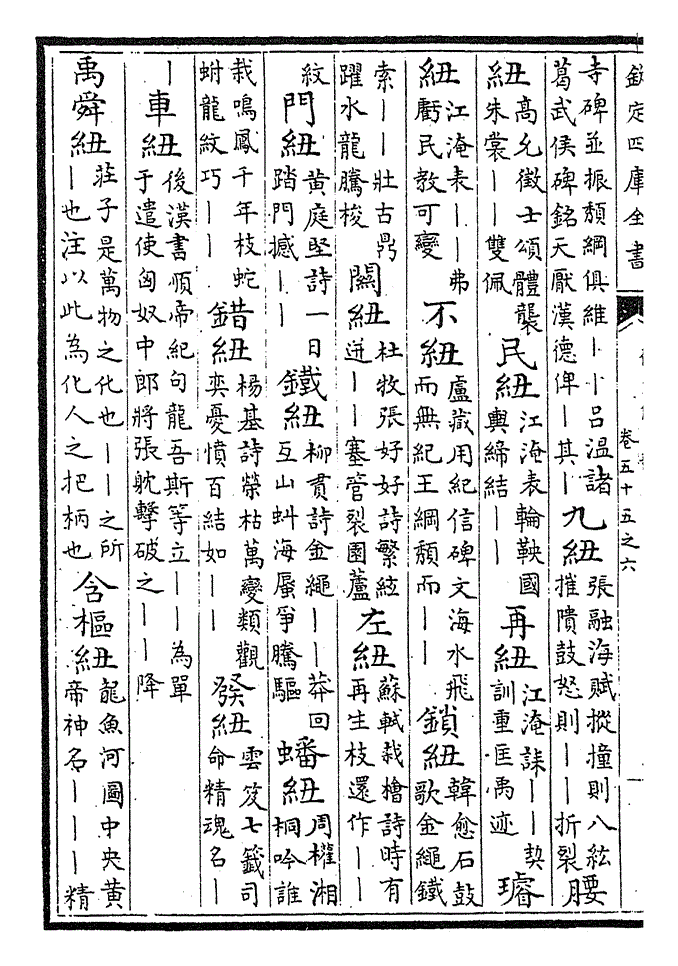 欽定四庫全書
卷五十五之六
寺碑並振頽綱俱維丨丨呂溫諸
葛武侯碑銘天厭漢德俾丨其丨
九紐
張融海賦摐撞則八紘
摧隤鼓怒則丨丨折裂
腰
紐
高允徵士頌體襲
朱裳丨丨雙佩
民紐
江淹表輪鞅國
輿締結丨丨
再紐
江淹誄丨丨契
訓重匡禹迹
璿
紐
江淹表丨丨弗
虧民教可變
不紐
盧藏用紀信碑文海水飛
而無紀王綱頽而丨丨
鎖紐
韓愈石鼓
歌金繩鐵
索丨丨壯古鼎
躍水龍騰梭
關紐
杜牧張好好詩繁絃
迸丨丨塞管裂圓蘆
左紐
蘇軾栽檜詩時有
再生枝還作丨丨
紋
門紐
黃庭堅詩一日
踏門撼丨丨
鐵紐
柳貫詩金繩丨丨莽回
互山虯海蜃爭騰驅
蟠紐
周權湘
桐吟誰
栽鳴鳳千年枝蛇
蚹龍紋巧丨丨
錯紐
楊基詩榮枯萬變類觀
奕憂憤百結如丨丨
發紐
雲笈七籤司
命精魂名丨
丨
車紐
後漢書順帝紀句龍吾斯等立丨丨為單
于遣使匈奴中郎將張躭擊破之丨丨降
禹舜紐
莊子是萬物之化也丨丨之所
丨也注以此為化人之把柄也
含樞紐
龍魚河圖中央黃
帝神名丨丨丨精